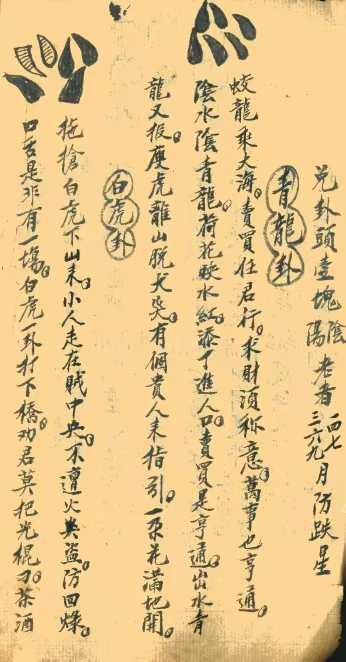 兌卦頭壹塊陰陽老者三四六七九月防跌星
青龍卦
蛟龍乘大海賣買任君行求財須称意萬事也亨通
陰水陰青龍荷花映水紅添丁進人口賣買是亨通出水青
龍又振虎離山脫犬哭有個貴人來指引一朵花滿地開
白虎卦
拖搶白虎下山來小人走在賊中央不遭火與盜防回燥
口舌是非有一塲白虎一卦打下橋劝君莫把光棍刁茶酒